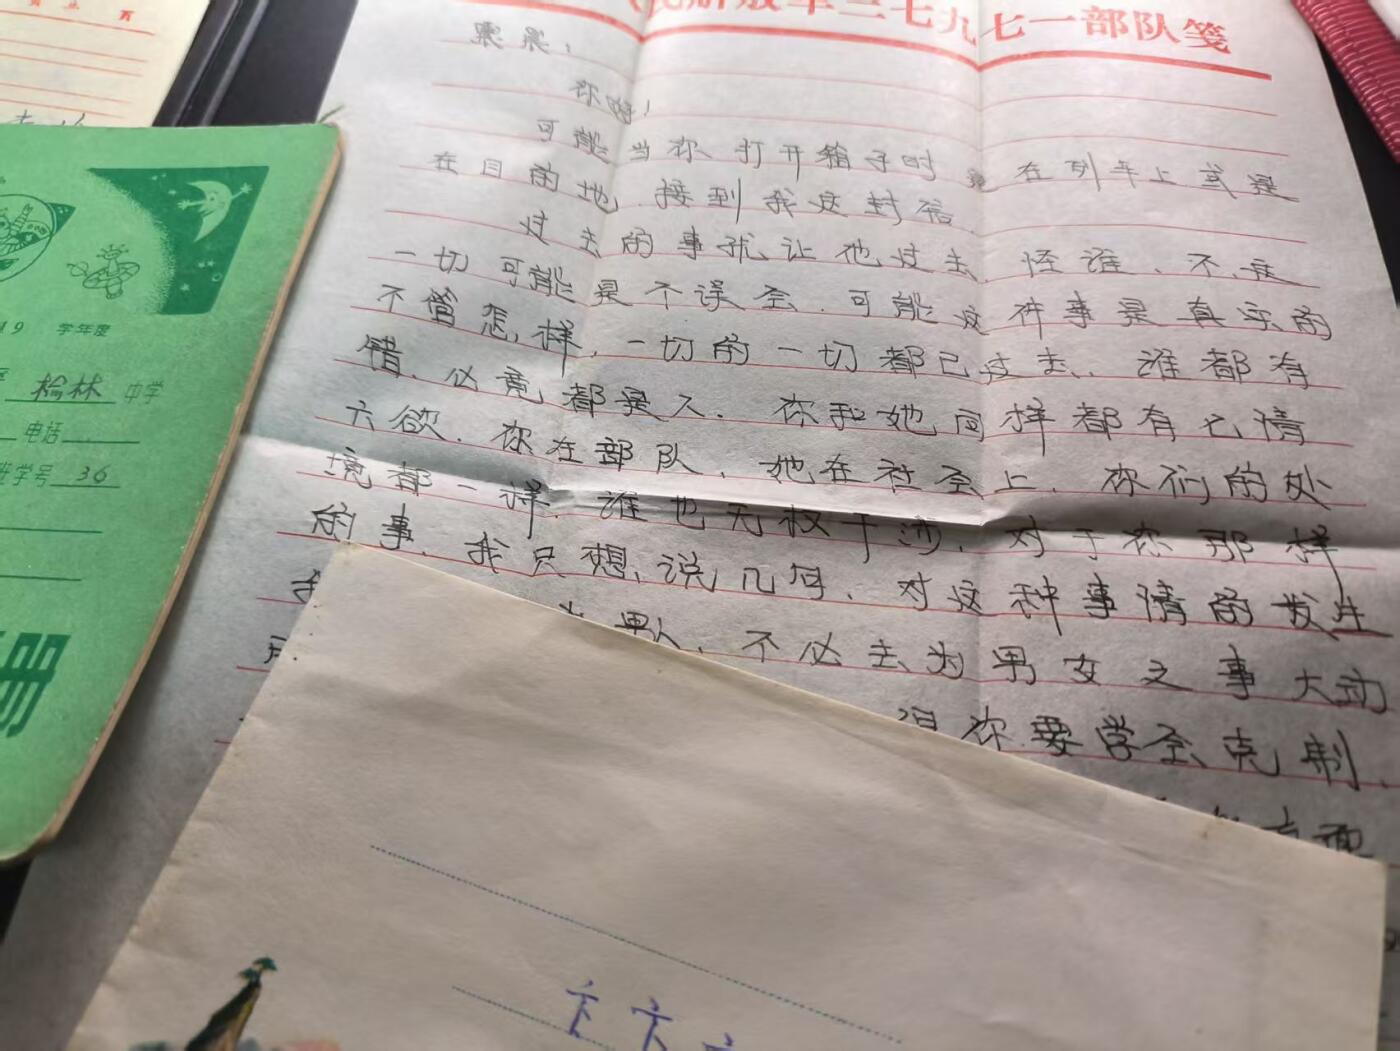 三七九七一部队笺
你好！
可能当你打开箱子时 是在列车上或是
在目的地 接到我这封信
过去的事就让他过去 怪谁、不是
一切可能是个误会．可能这件事是真实的
不管怎样，一切的一切都已过去、谁都有
错、必竟都是人．你和她同样都有七情
六欲．你在部队，她在社会上．你们的处
境都一样．谁也无权干涉，对于你那样
的事．我只想说几句，对这种事情的发生
不必去为男女之事大动
你要学会克制
学年度
榆林 中学
电话
班学号 36
册
卞卞